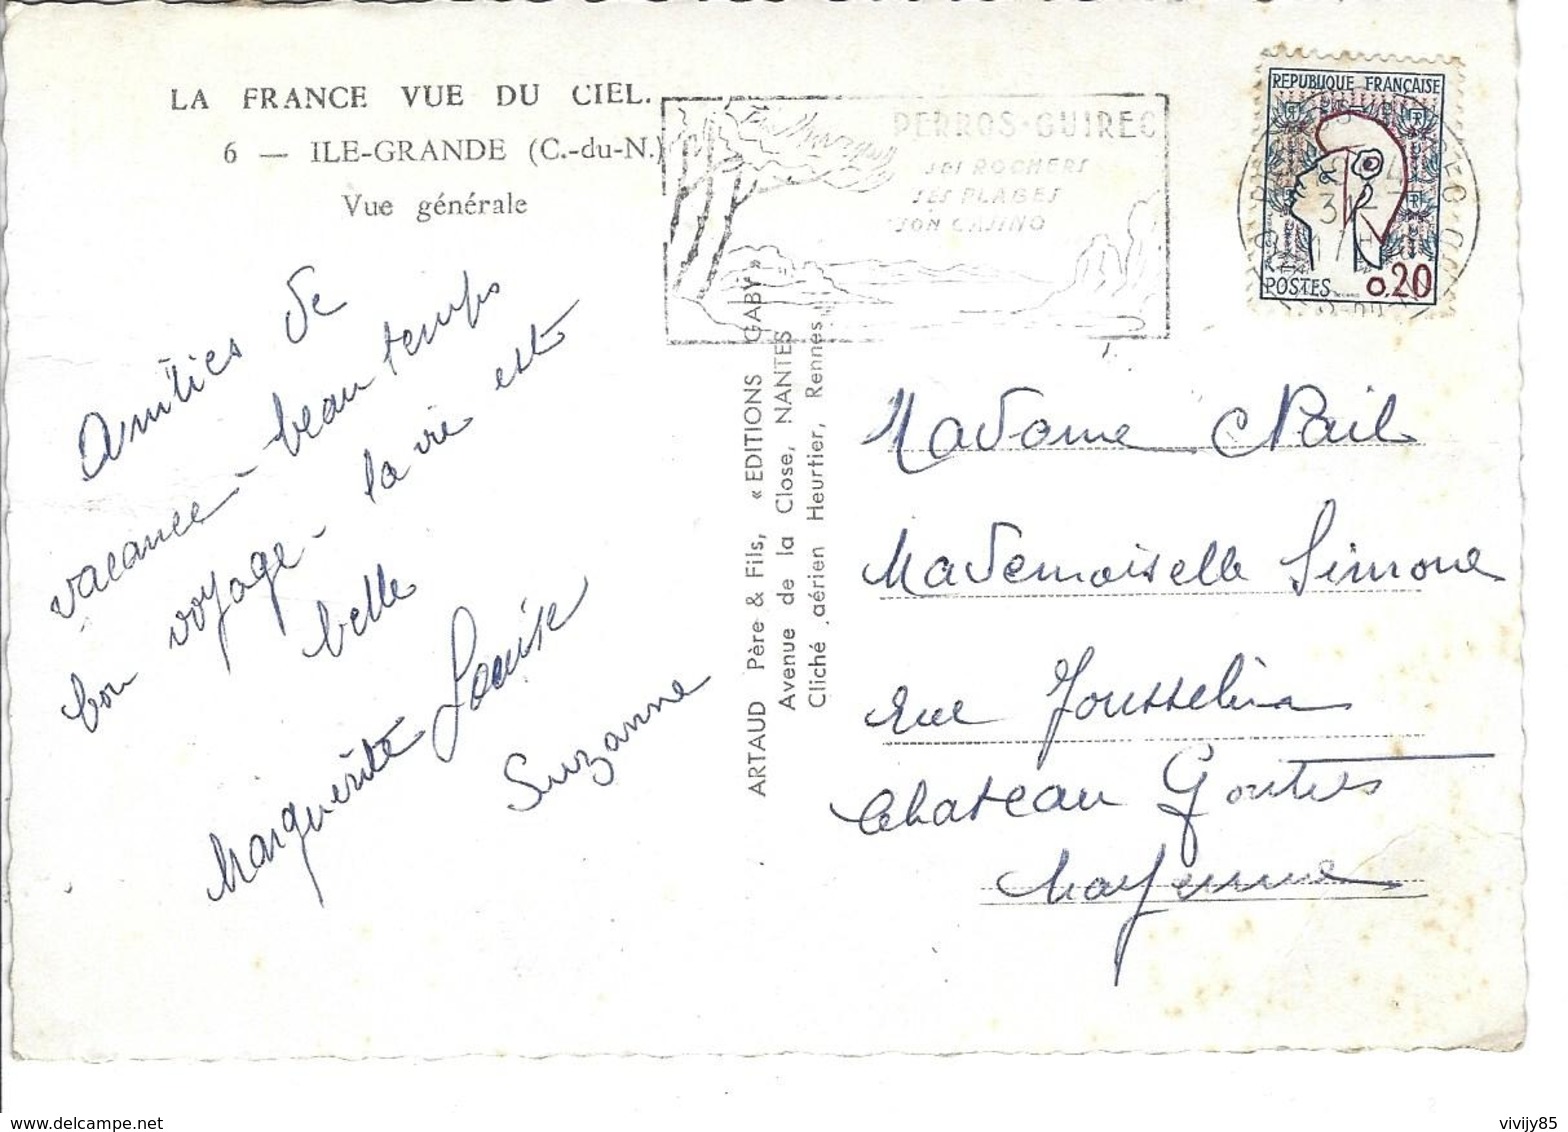 LA FRANCE VUE DU CIEL.
6 — ILE-GRANDE (C.-du-N.)
Vue générale
PERROS-GUIREC
SES ROCHERS
SES PLAGES
SON CASINO
REPUBLIQUE FRANÇAISE
POSTES 0,20
31-
17H
Amitiés de
vacance - beau temps
bon voyage - la vie est
belle
Marguerite Louise
Suzanne
ARTAUD Père & Fils, « EDITIONS GABY »
Avenue de la Close, NANTES
Cliché aérien Heurtier, Rennes
Madame Nail
Mademoiselle Simone
rue Jousselin
Chateau Gontier
Mayenne
www.delcampe.net
vivijy85